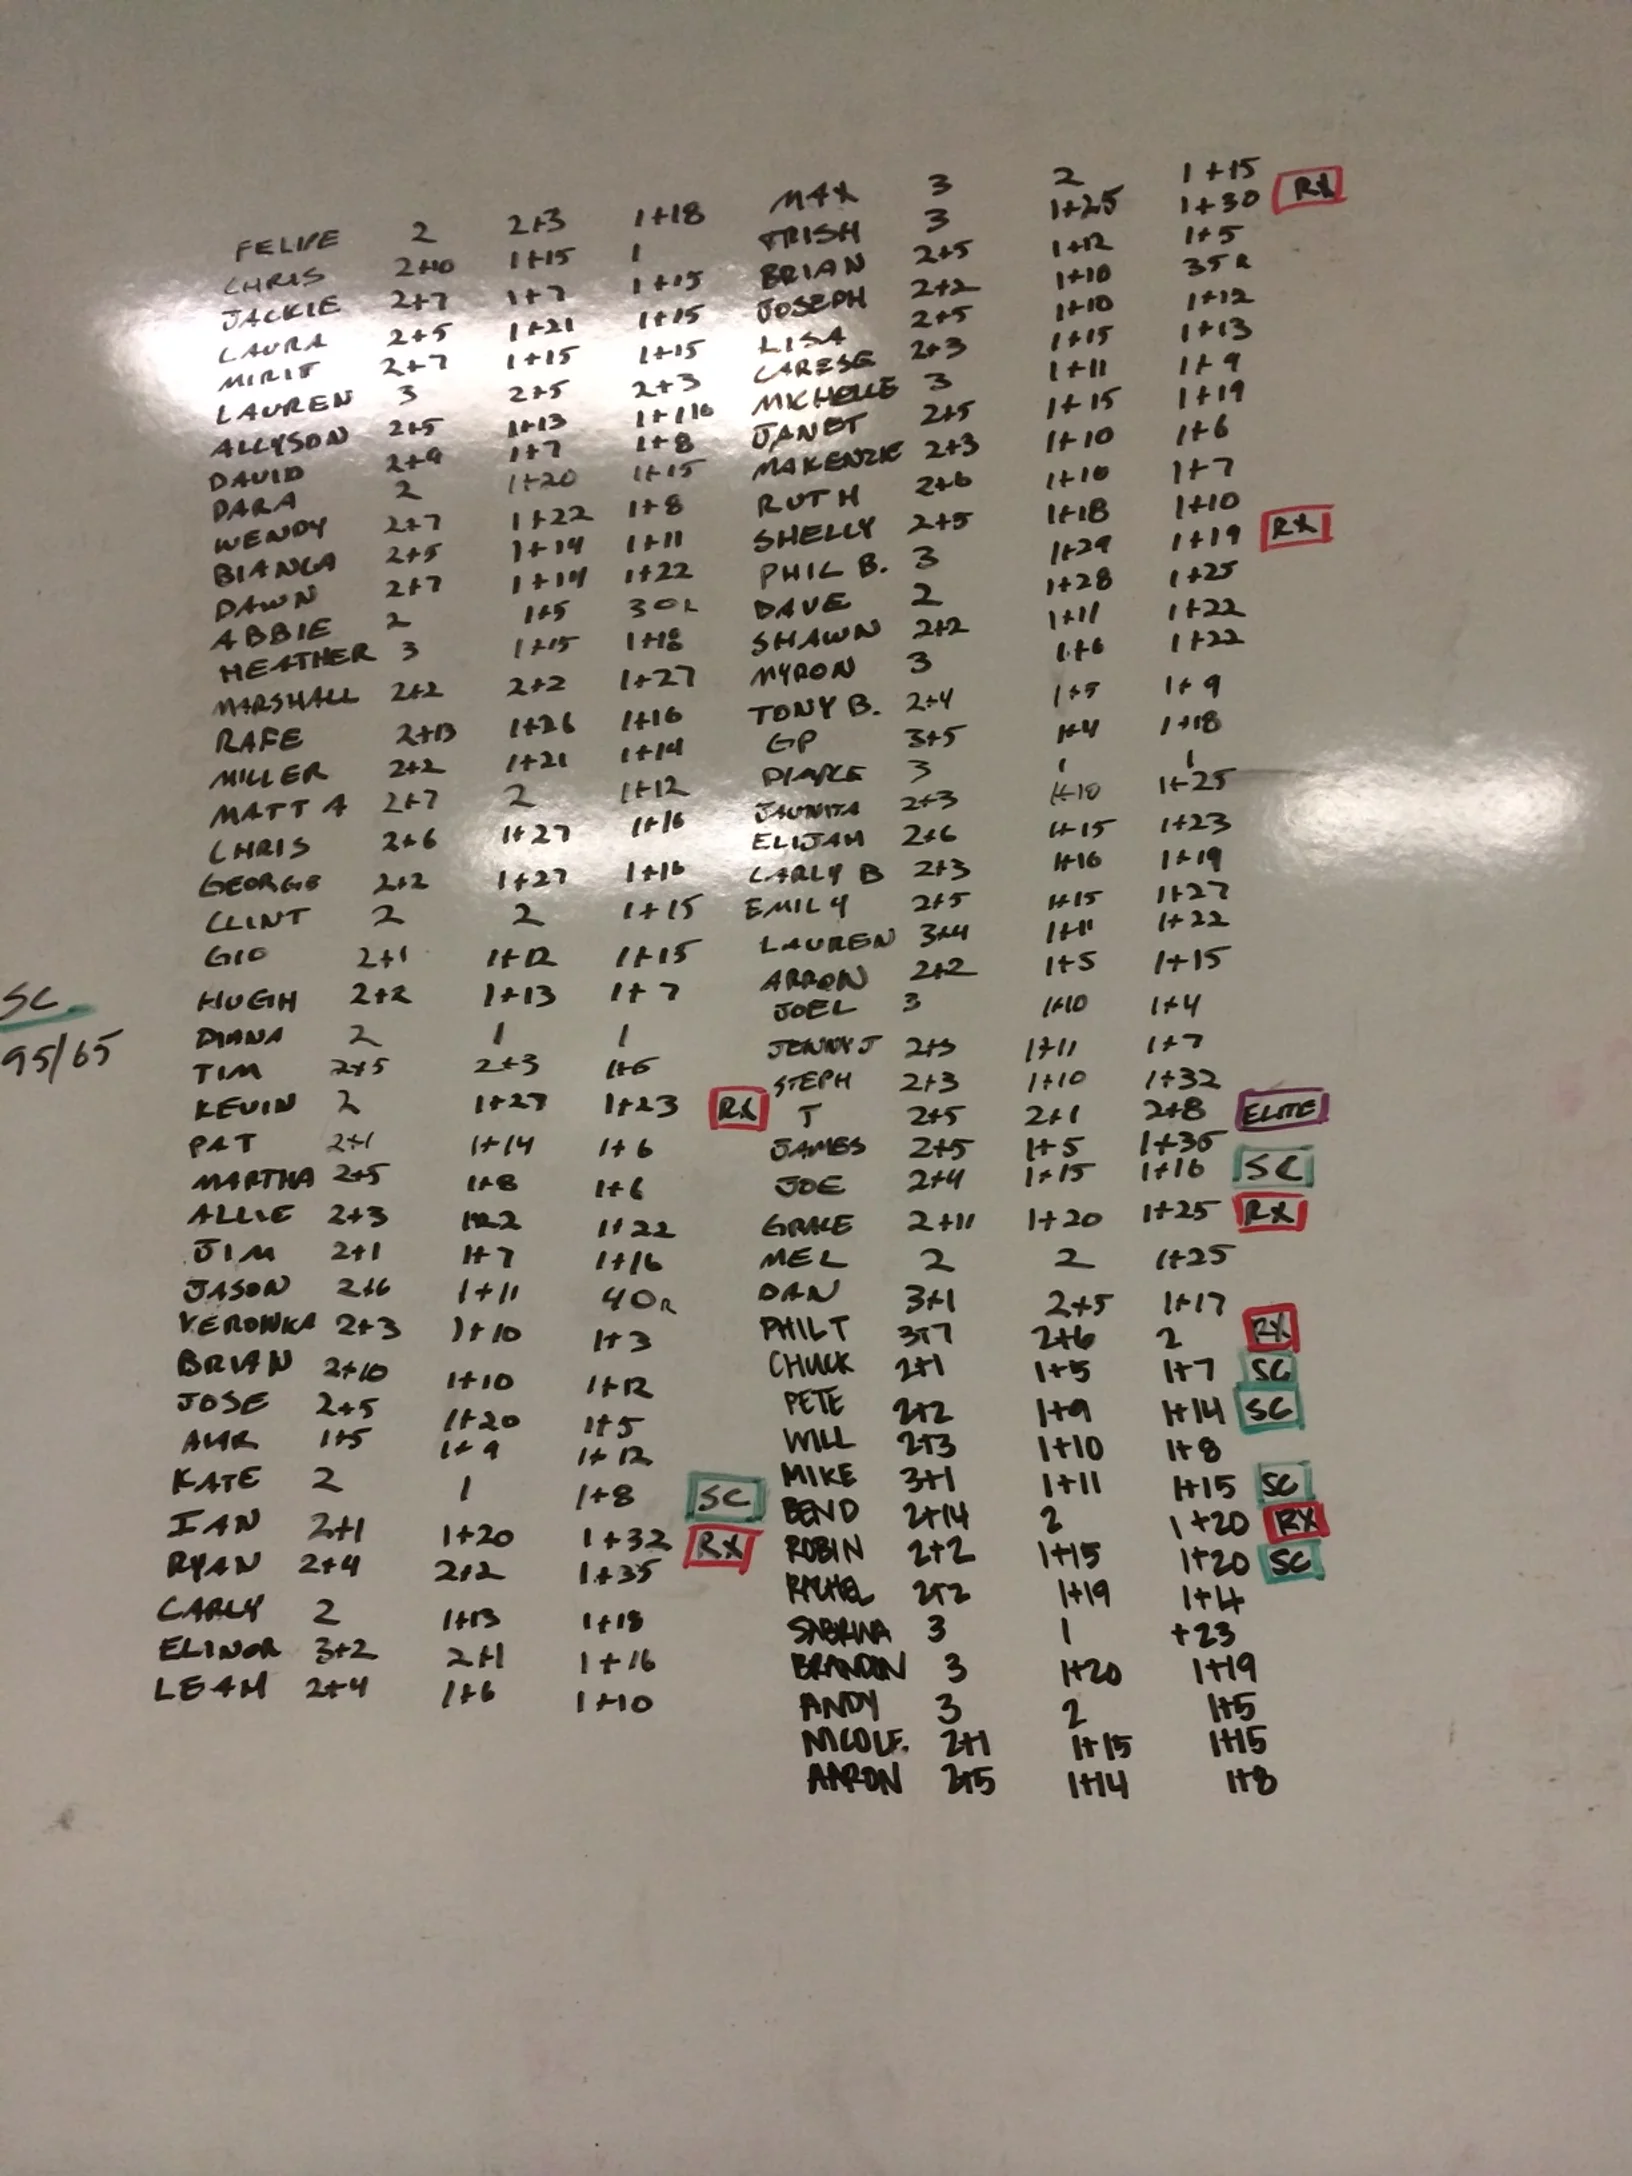 FELIPE 2 2+3 1+18
CHRIS 2+10 1+15 1
JACKIE 2+7 1+7 1+15
LAURA 2+5 1+21 1+15
MIRIT 2+7 1+15 1+15
LAUREN 3 2+5 2+3
ALLYSON 2+5 1+13
DAVID 2+9 1+7 1+8
DARA 2 1+20 1+15
WENDY 2+7 1+22 1+8
BIANCA 2+5 1+14 1+11
DAWN 2+7 1+14 1+22
ABBIE 2 1+5 30R
HEATHER 3 1+15 1+18
MARSHALL 2+2 2+2 1+27
RAFE 2+13 1+26 1+16
MILLER 2+2 1+21 1+14
MATT A 2+7 2 1+12
CHRIS 2+6 1+27 1+16
GEORGE 2+2 1+27 1+16
CLINT 2 2 1+15
GIO 2+1 1+12 1+15
HUGH 2+2 1+13 1+7
DIANA 2 1 1
TIM 2+5 2+3 1+6
KEVIN 2 1+27 1+23 RX
PAT 2+1 1+14 1+6
MARTHA 2+5 1+8 1+6
ALLIE 2+3 1+22 1+22
JIM 2+1 1+7 1+16
JASON 2+6 1+11 40R
VERONIKA 2+3 1+10 1+3
BRIAN 2+10 1+10 1+12
JOSE 2+5 1+20 1+5
AMR 1+5 1+9 1+12
KATE 2 1 1+8 SC
IAN 2+1 1+20 1+32 RX
RYAN 2+4 2+2 1+35
CARLY 2 1+13 1+18
ELINOR 3+2 2+1 1+16
LEAH 2+4 1+6 1+10
SC
95/65
MAX 3 2 1+15
TRISH 3 1+25 1+30 RX
BRIAN 2+5 1+12 1+5
JOSEPH 2+2 1+10 35R
LISA 2+5 1+10 1+12
CARESE 2+3 1+15 1+13
MICHELLE 3 1+11 1+9
JANET 2+5 1+15 1+19
MAKENZIE 2+3 1+10 1+6
RUTH 2+6 1+10 1+7
SHELLY 2+5 1+18 1+10
PHIL B. 3 1+29 1+19 RX
DAVE 2 1+28 1+25
SHAWN 2+2 1+11 1+22
MYRON 3 1+6 1+22
TONY B. 2+4 1+5 1+9
GP 3+5 1+4 1+18
3 1 1
JAUNITA 2+3 1+10 1+25
ELIJAH 2+6 1+15 1+23
CARLY B 2+3 1+16 1+19
EMILY 2+5 1+15 1+27
LAUREN 3+4 1+11 1+22
ARRON 2+2 1+5 1+15
JOEL 3 1+10 1+4
JENNY J 2+3 1+11 1+7
STEPH 2+3 1+10 1+32
T 2+5 2+1 2+8 ELITE
JAMES 2+5 1+5 1+36
JOE 2+4 1+15 1+16 SC
GRACE 2+11 1+20 1+25 RX
MEL 2 2 1+25
DAN 3+1 2+5 1+17
PHIL T 3+7 2+6 2 RX
CHUCK 2+1 1+5 1+7 SC
PETE 2+2 1+9 1+14 SC
WILL 2+3 1+10 1+8
MIKE 3+1 1+11 1+15 SC
BEND 2+14 2 1+20 RX
ROBIN 2+2 1+15 1+20 SC
RACHEL 2+2 1+19 1+4
SABRINA 3 1 +23
BRANDON 3 1+20 1+19
ANDY 3 2 1+5
NICOLE. 2+1 1+15 1+15
AARON 2+5 1+14 1+8